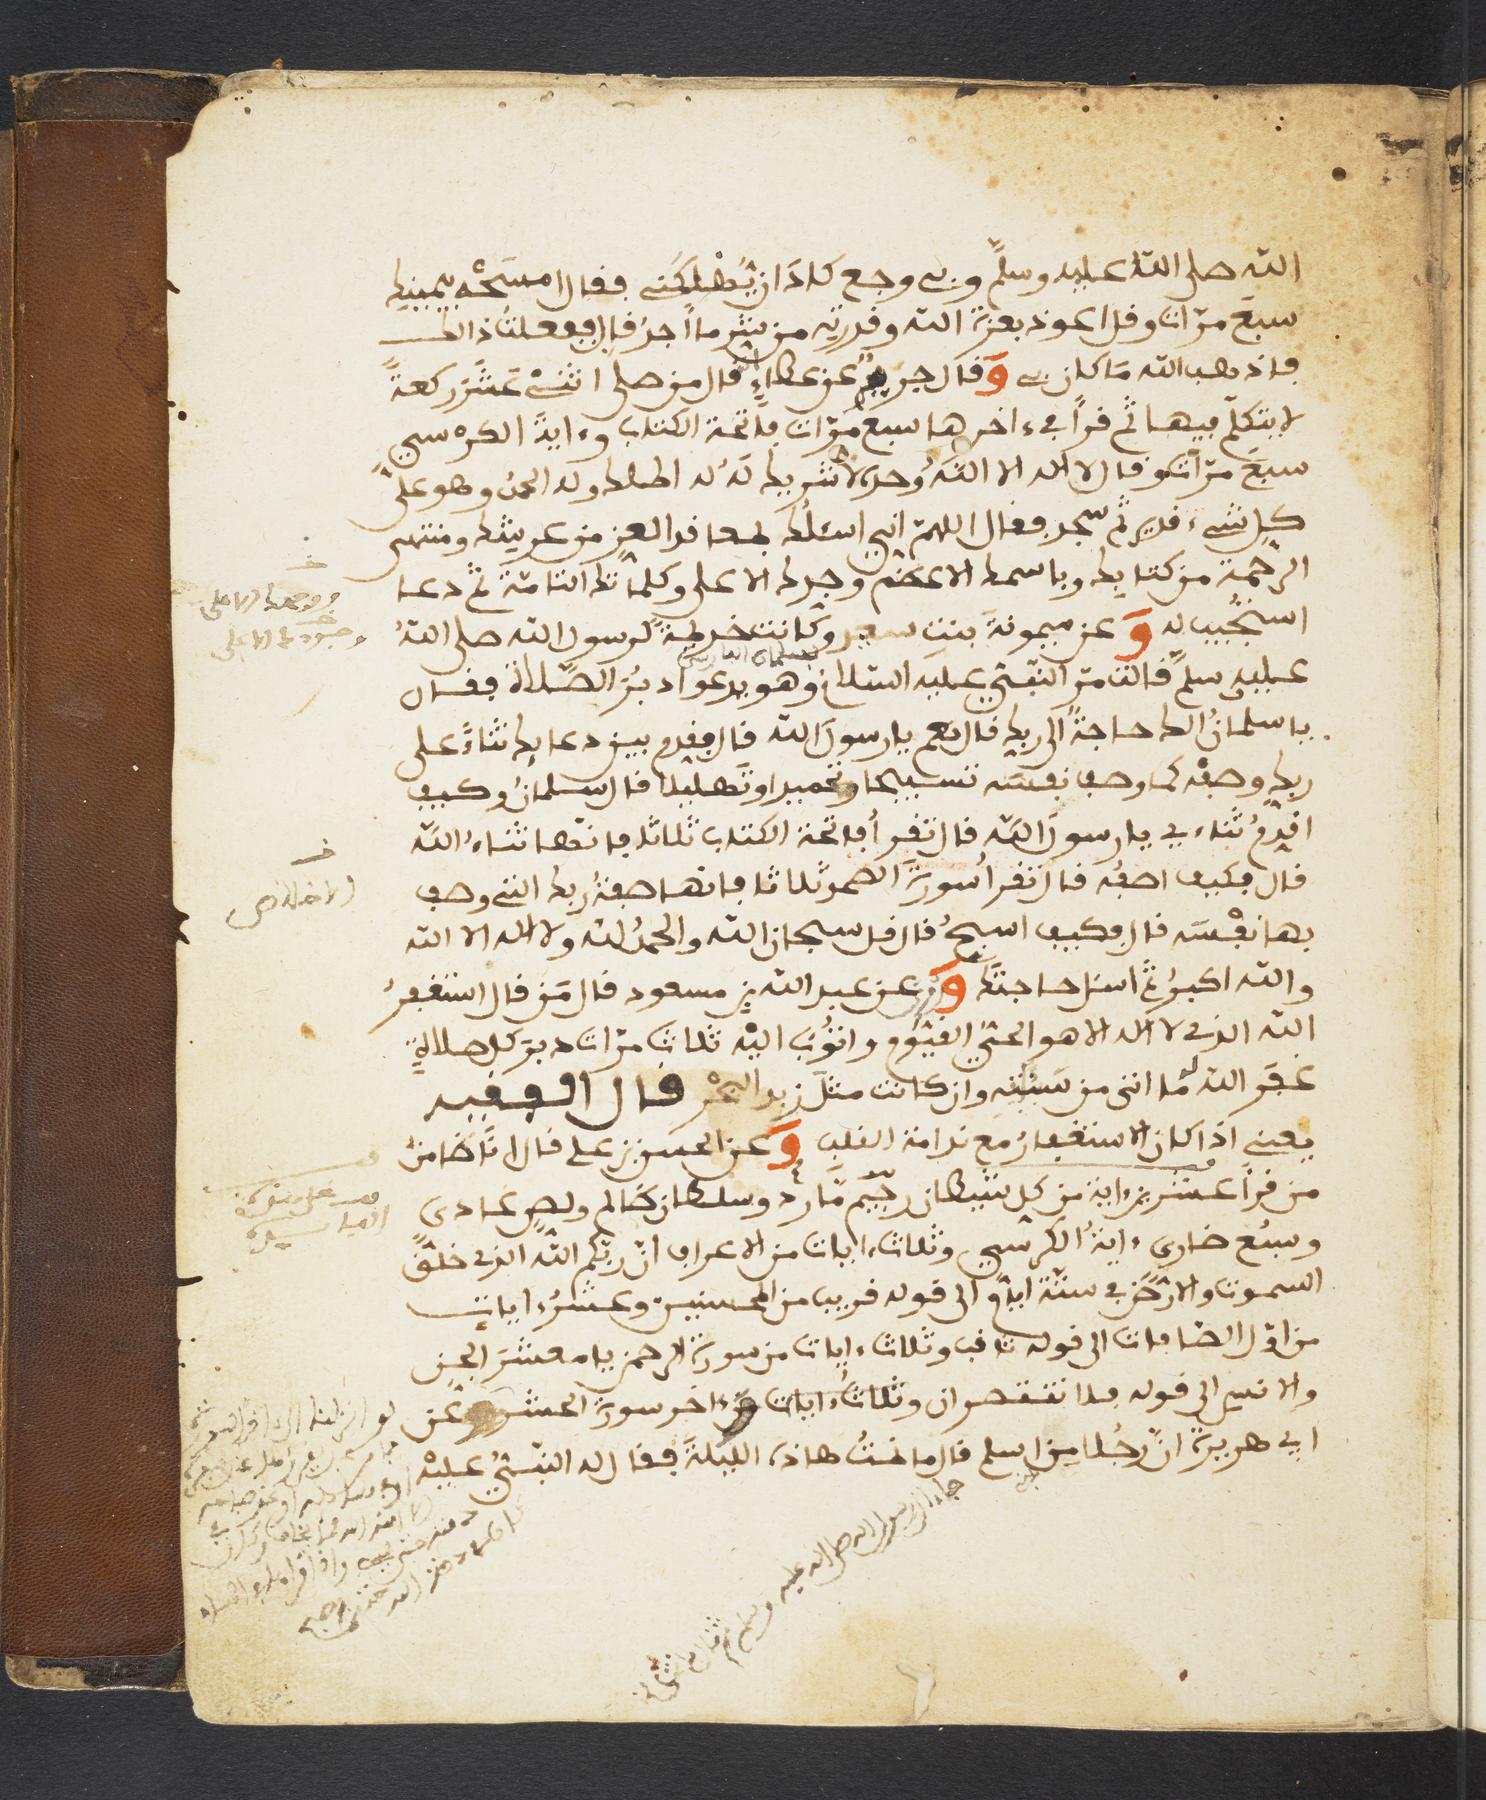 الله صلى الله عليه وسلم وبي وجع كاد ان يهلكني فقال امسحه بيمينك
سبع مرات وقل اعوذ بعزة الله وقدرته من شر ما اجد قال ففعلت ذالك
فاذهب الله ما كان بي وقال جرير عن عطاء قال من صلى اثنتي عشر ركعة
لا يتكلم فيها ثم قرأ في ءاخرها سبع مرات فاتحة الكتاب وءاية الكرسي
سبع مرات وقال لا اله الا الله وحده لا شريك له له الملك وله الحمد وهو على
كل شيء قدير ثم سجد فقال اللهم اني اسئلك بمعاقد العز من عرشك ومنتهى
الرحمة من كتابك وباسمك الاعظم وجدك الاعلى وكلماتك التامة ثم دعا
استجيب له وعن ميمونة بنت سعد وكانت خدمة لرسول الله صلى الله
عليه وسلم قالت مر النبي عليه السلام بسلمان الفارسي وهو يدعوا دبر الصلاة فقال
يا سلمان الك حاجة الى ربك قال نعم يا رسول الله قال فقدم بين دعائك ثناء على
ربك وصفه كما وصف نفسه تسبيحا وتحميدا وتهليلا قال سلمان وكيف
اقدم ثناءي يا رسول الله قال تقرأ فاتحة الكتاب ثلاثا فانها ثناء الله
قال فكيف اصفه قال تقرأ سورة الصمد ثلاثا فانها صفة ربك التي وصف
بها نفسه قال فكيف اسبح قال قل سبحان الله والحمد لله ولا اله الا الله
والله اكبر ثم اسئل حاجتك وعن عبد الله بن مسعود قال من قال استغفر
الله الذي لا اله الا هو الحي القيوم واتوب اليه ثلاث مرات دبر كل صلاة
غفر الله له ما اتى من سيئة وان كانت مثل زبد البحر قال الفقيه
يعني اذا كان الاستغفار مع ندامة القلب وعن الحسن بن علي قال انا ضامن
من قرأ عشرين ءاية من كل شيطان رجيم مارد وسلطان ظالم ولص عادي
وسبع ضاري ءاية الكرسي وثلاث ءايات من الاعراف ان ربكم الله الذي خلق
السموت والارض في ستة ايام الى قوله قريب من المحسنين وعشر ءايات
من اول الصافات الى قوله ثاقب وثلاث ءايات من سورة الرحمن يا معشر الجن
والانس الى قوله فلا تنتصران وثلاث ءايات من ءاخر سورة الحشر وعن
ابي هريرة ان رجلا من اسلم قال ما نمت هاذه الليلة فقال له النبي عليه
ومجدك الاعلى
وجدك الاعلى
الاخلاص
جاء الى رسول الله صلى الله عليه وسلم فقال